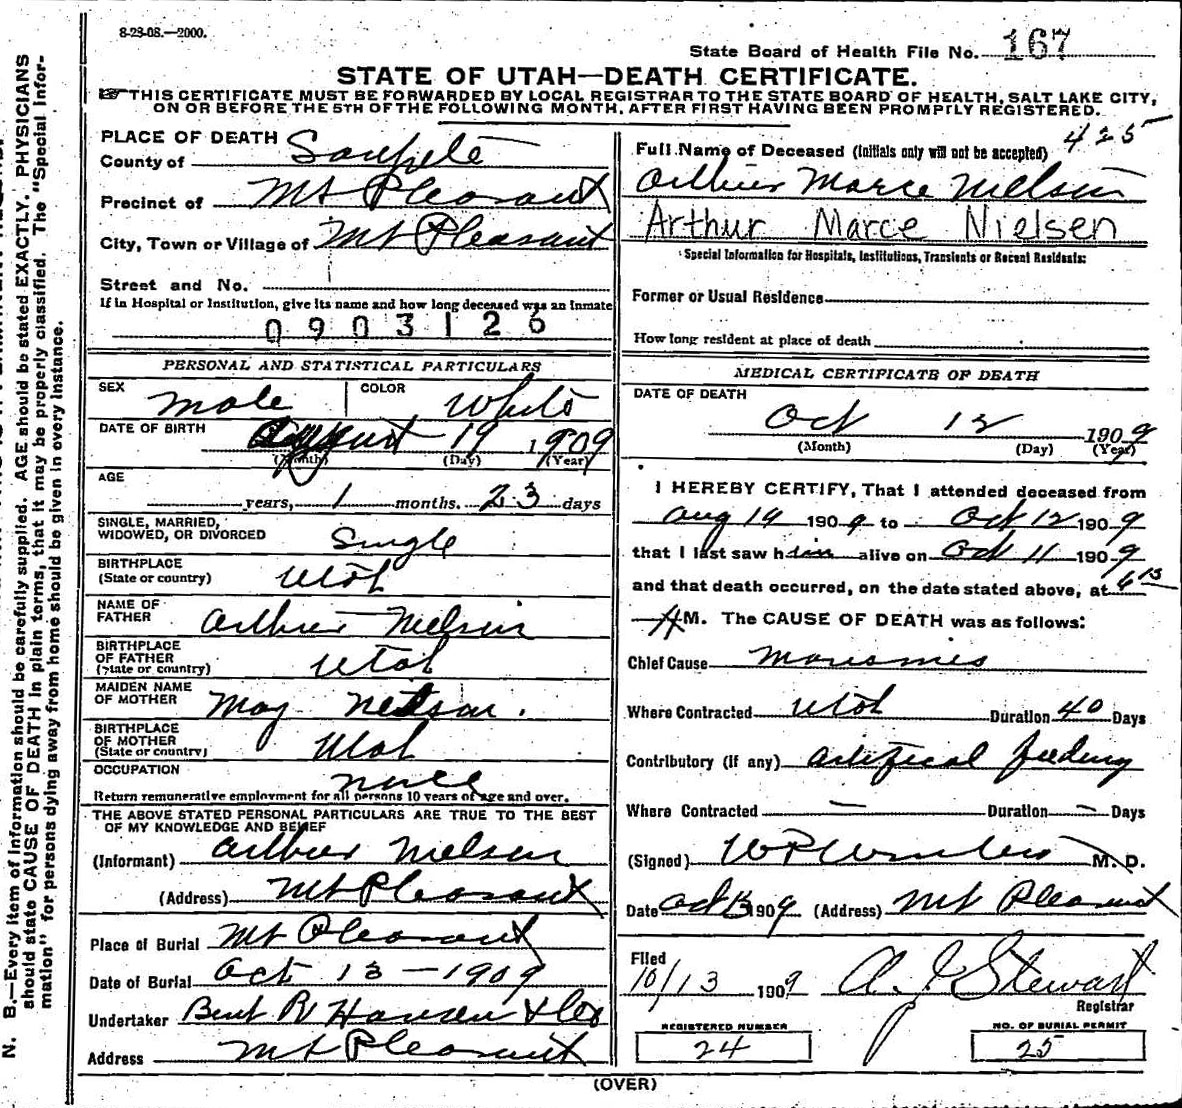 8-23-08.—2000.
State Board of Health File No. 167
STATE OF UTAH—DEATH CERTIFICATE.
THIS CERTIFICATE MUST BE FORWARDED BY LOCAL REGISTRAR TO THE STATE BOARD OF HEALTH, SALT LAKE CITY,
ON OR BEFORE THE 5TH OF THE FOLLOWING MONTH, AFTER FIRST HAVING BEEN PROMPTLY REGISTERED.
PLACE OF DEATH
County of Sanpete
Precinct of Mt Pleasant
City, Town or Village of Mt Pleasant
Street and No.
If in Hospital or Institution, give its name and how long deceased was an Inmate
0903126
PERSONAL AND STATISTICAL PARTICULARS
SEX Male COLOR White
DATE OF BIRTH August 19 1909
(Month) (Day) (Year)
AGE
years, 1 months. 23 days
SINGLE, MARRIED,
WIDOWED, OR DIVORCED Single
BIRTHPLACE
(State or country) Utah
NAME OF
FATHER Arthur Nielsen
BIRTHPLACE
OF FATHER
(State or country) Utah
MAIDEN NAME
OF MOTHER May
BIRTHPLACE
OF MOTHER
(State or country) Utah
OCCUPATION none
Return remunerative employment for all persons 10 years of age and over.
THE ABOVE STATED PERSONAL PARTICULARS ARE TRUE TO THE BEST
OF MY KNOWLEDGE AND BELIEF
(Informant) Arthur Nielsen
(Address) Mt Pleasant
Place of Burial Mt Pleasant
Date of Burial Oct 13 - 1909
Undertaker Bent R Hansen & Co
Address Mt Pleasant
425
Full Name of Deceased (Initials only will not be accepted)
Arthur Marce Nielsen
Arthur Marce Nielsen
Special Information for Hospitals, Institutions, Transients or Recent Residents:
Former or Usual Residence
How long resident at place of death
MEDICAL CERTIFICATE OF DEATH
DATE OF DEATH
Oct 12 1909
(Month) (Day) (Year)
I HEREBY CERTIFY, That I attended deceased from
Aug 19 1909 to Oct 12 1909
that I last saw him alive on Oct 11 1909
and that death occurred, on the date stated above, at 6 15
A M. The CAUSE OF DEATH was as follows:
Chief Cause Marasmus
Where Contracted Utah Duration 40 Days
Contributory (if any) Artifical feeding
Where Contracted — Duration — Days
(Signed) M. D.
Date Oct 13 1909 (Address) Mt Pleasant
Filed
10/13 1909 A. J. Stewart
Registrar
REGISTERED NUMBER
24
NO. OF BURIAL PERMIT
25
(OVER)
N. B.—Every item of information should be carefully supplied. AGE should be stated EXACTLY. PHYSICIANS
should state CAUSE OF DEATH in plain terms, that it may be properly classified. The "Special Infor-
mation" for persons dying away from home should be given in every instance.